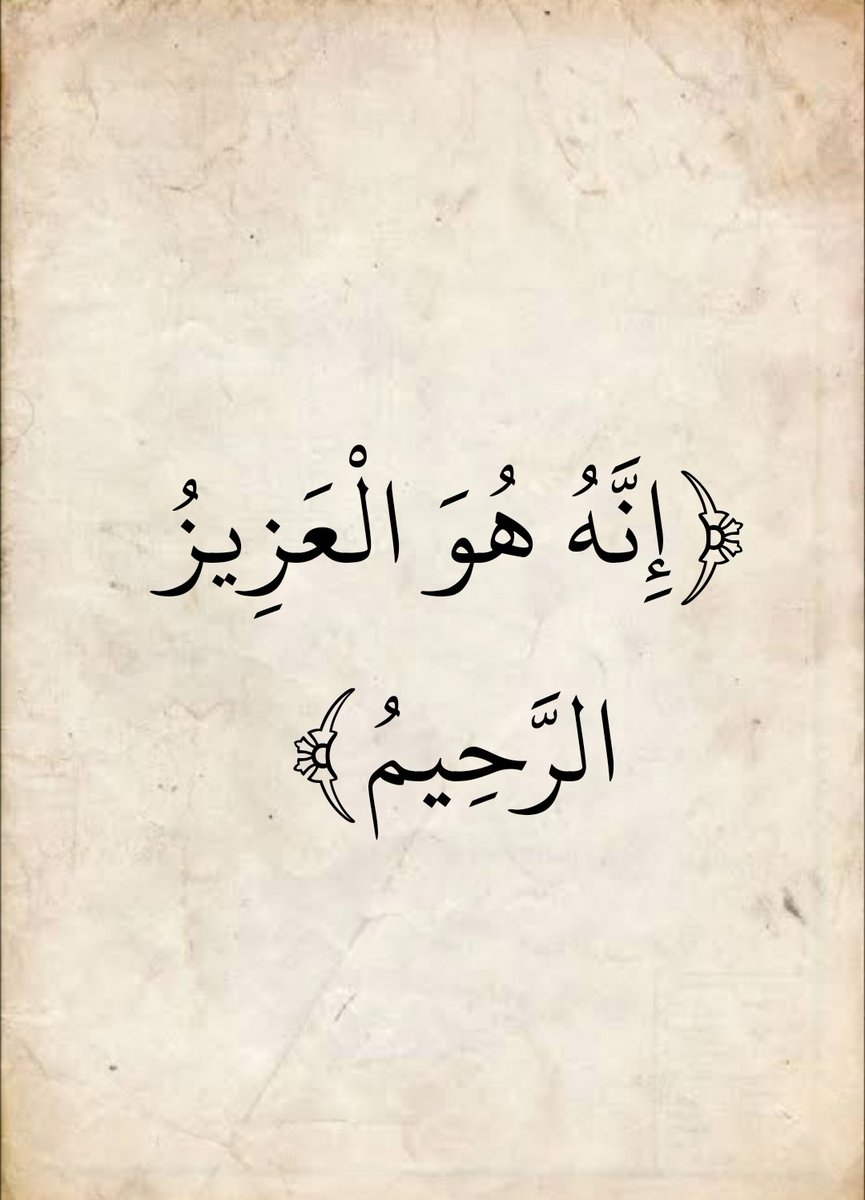 ﴿إِنَّهُ هُوَ الْعَزِيزُ
الرَّحِيمُ﴾